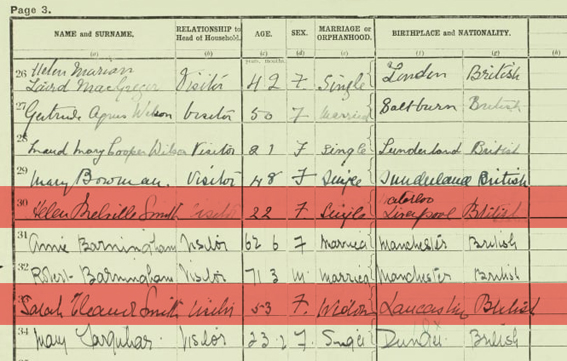 Page 3.
NAME and SURNAME. RELATIONSHIP to Head of Household. AGE. SEX. MARRIAGE or ORPHANHOOD. BIRTHPLACE and NATIONALITY.
(a) (b) (c) (d) (e) (f) (g) (h)
years. months.
26 Helen Marian Laird MacGregor Visitor 42 F Single London British
27 Gertrude Agnes Wilson Visitor 50 F Married Saltburn British
28 Maud Mary Cooper Wilson Visitor 21 F Single Sunderland British
29 Mary Bowman. Visitor 48 F Single Sunderland British
30 Helen Melville Smith Visitor 22 F Single Waterloo Liverpool British
31 Annie Barmingham Visitor 62 6 F Married Manchester British
32 Robert Barmingham Visitor 71 3 M. Married Manchester British
33 Sarah Eleanor Smith Visitor 53 F. Widow Lancashire British
34 Mary Farquhar Visitor 23 2 F. Single Dundee British